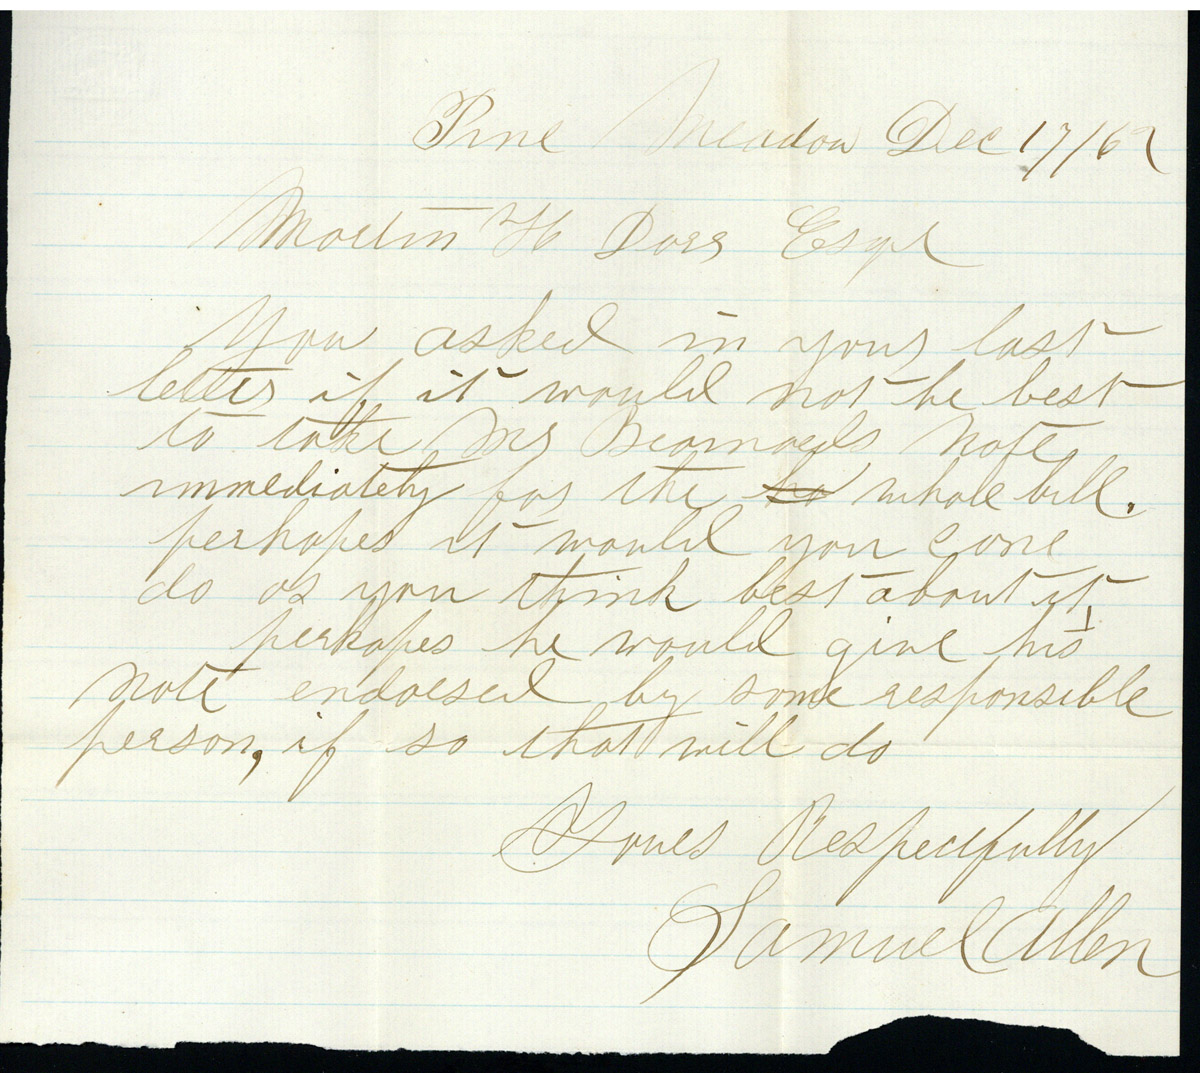 Pine Meadow Dec 17/62
Martin H Dorr Esqr
You asked in your last
letter if it would not be best
to take Mr Bearnards Note
immediately for the whole bill.
perhapes it would you cane
do as you think best about it
perhapes he would give his
note endorsed by some responsible
person, if so that will do
Youres Respectfully
Samuel Allen